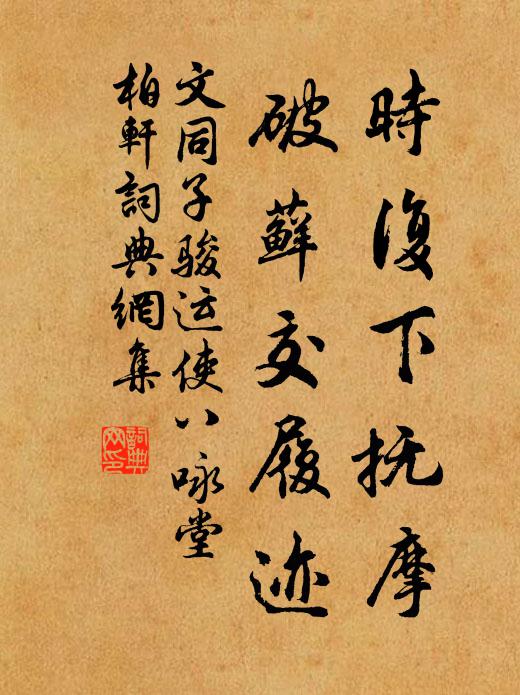 時復下抚摩
破蘚交履迹
文同子骏运使八咏堂
柏軒詞典網集
詞典网印